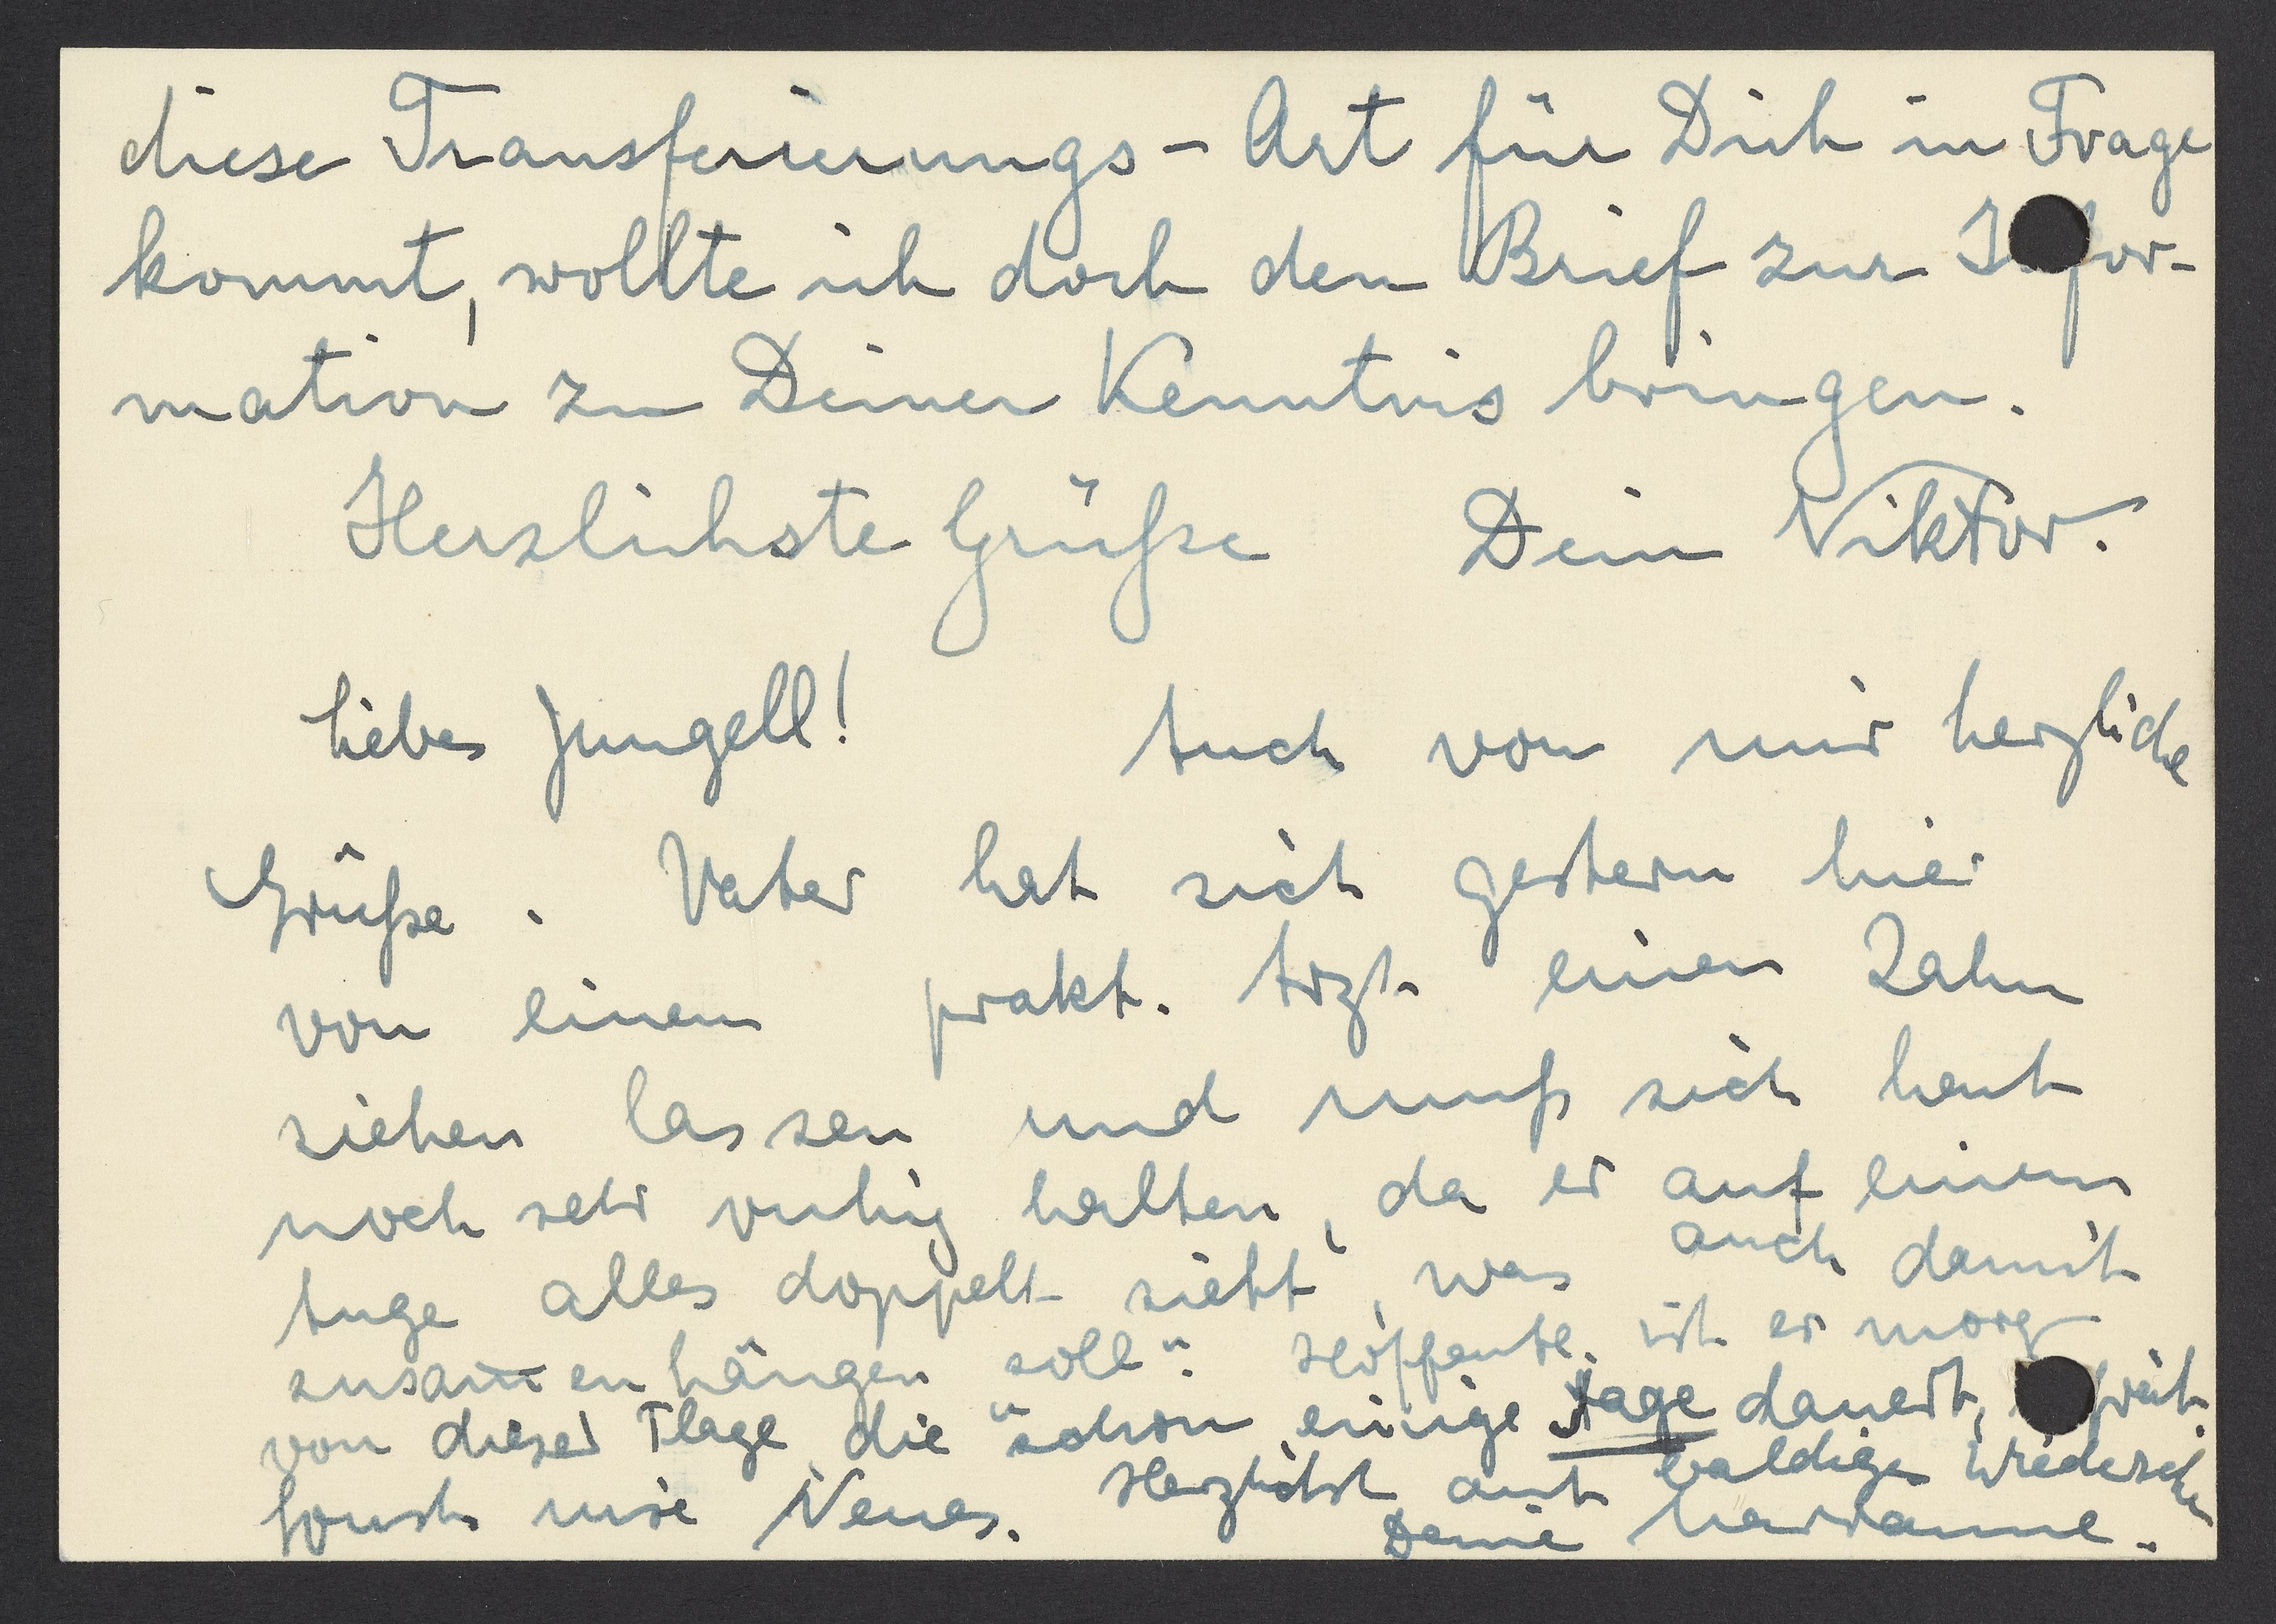 diese Transferierungs-Art für Dich in Frage
kommt, wollte ich doch den Brief zur Infor-
mation zu Deiner Kenntnis bringen.
Herzlichste Grüße Dein Viktor.
Liebes Jungell! Auch von mir herzliche
Grüße. Vater hat sich gestern hier
von einem prakt. Arzt einen Zahn
ziehen lassen und muß sich heut
noch sehr ruhig halten, da er auf einem
Auge alles doppelt sieht, was auch damit
zusam̅enhängen soll". Hoffentl. ist er morg
von dieser Plage, die "schon einige Tage dauert, befreit.
Sonst nix Neues. Herzlichst auf baldiges Wiedersehn
Deine Marianne.